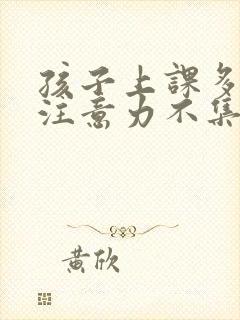 孩子上課多
注意力不集
黃欣